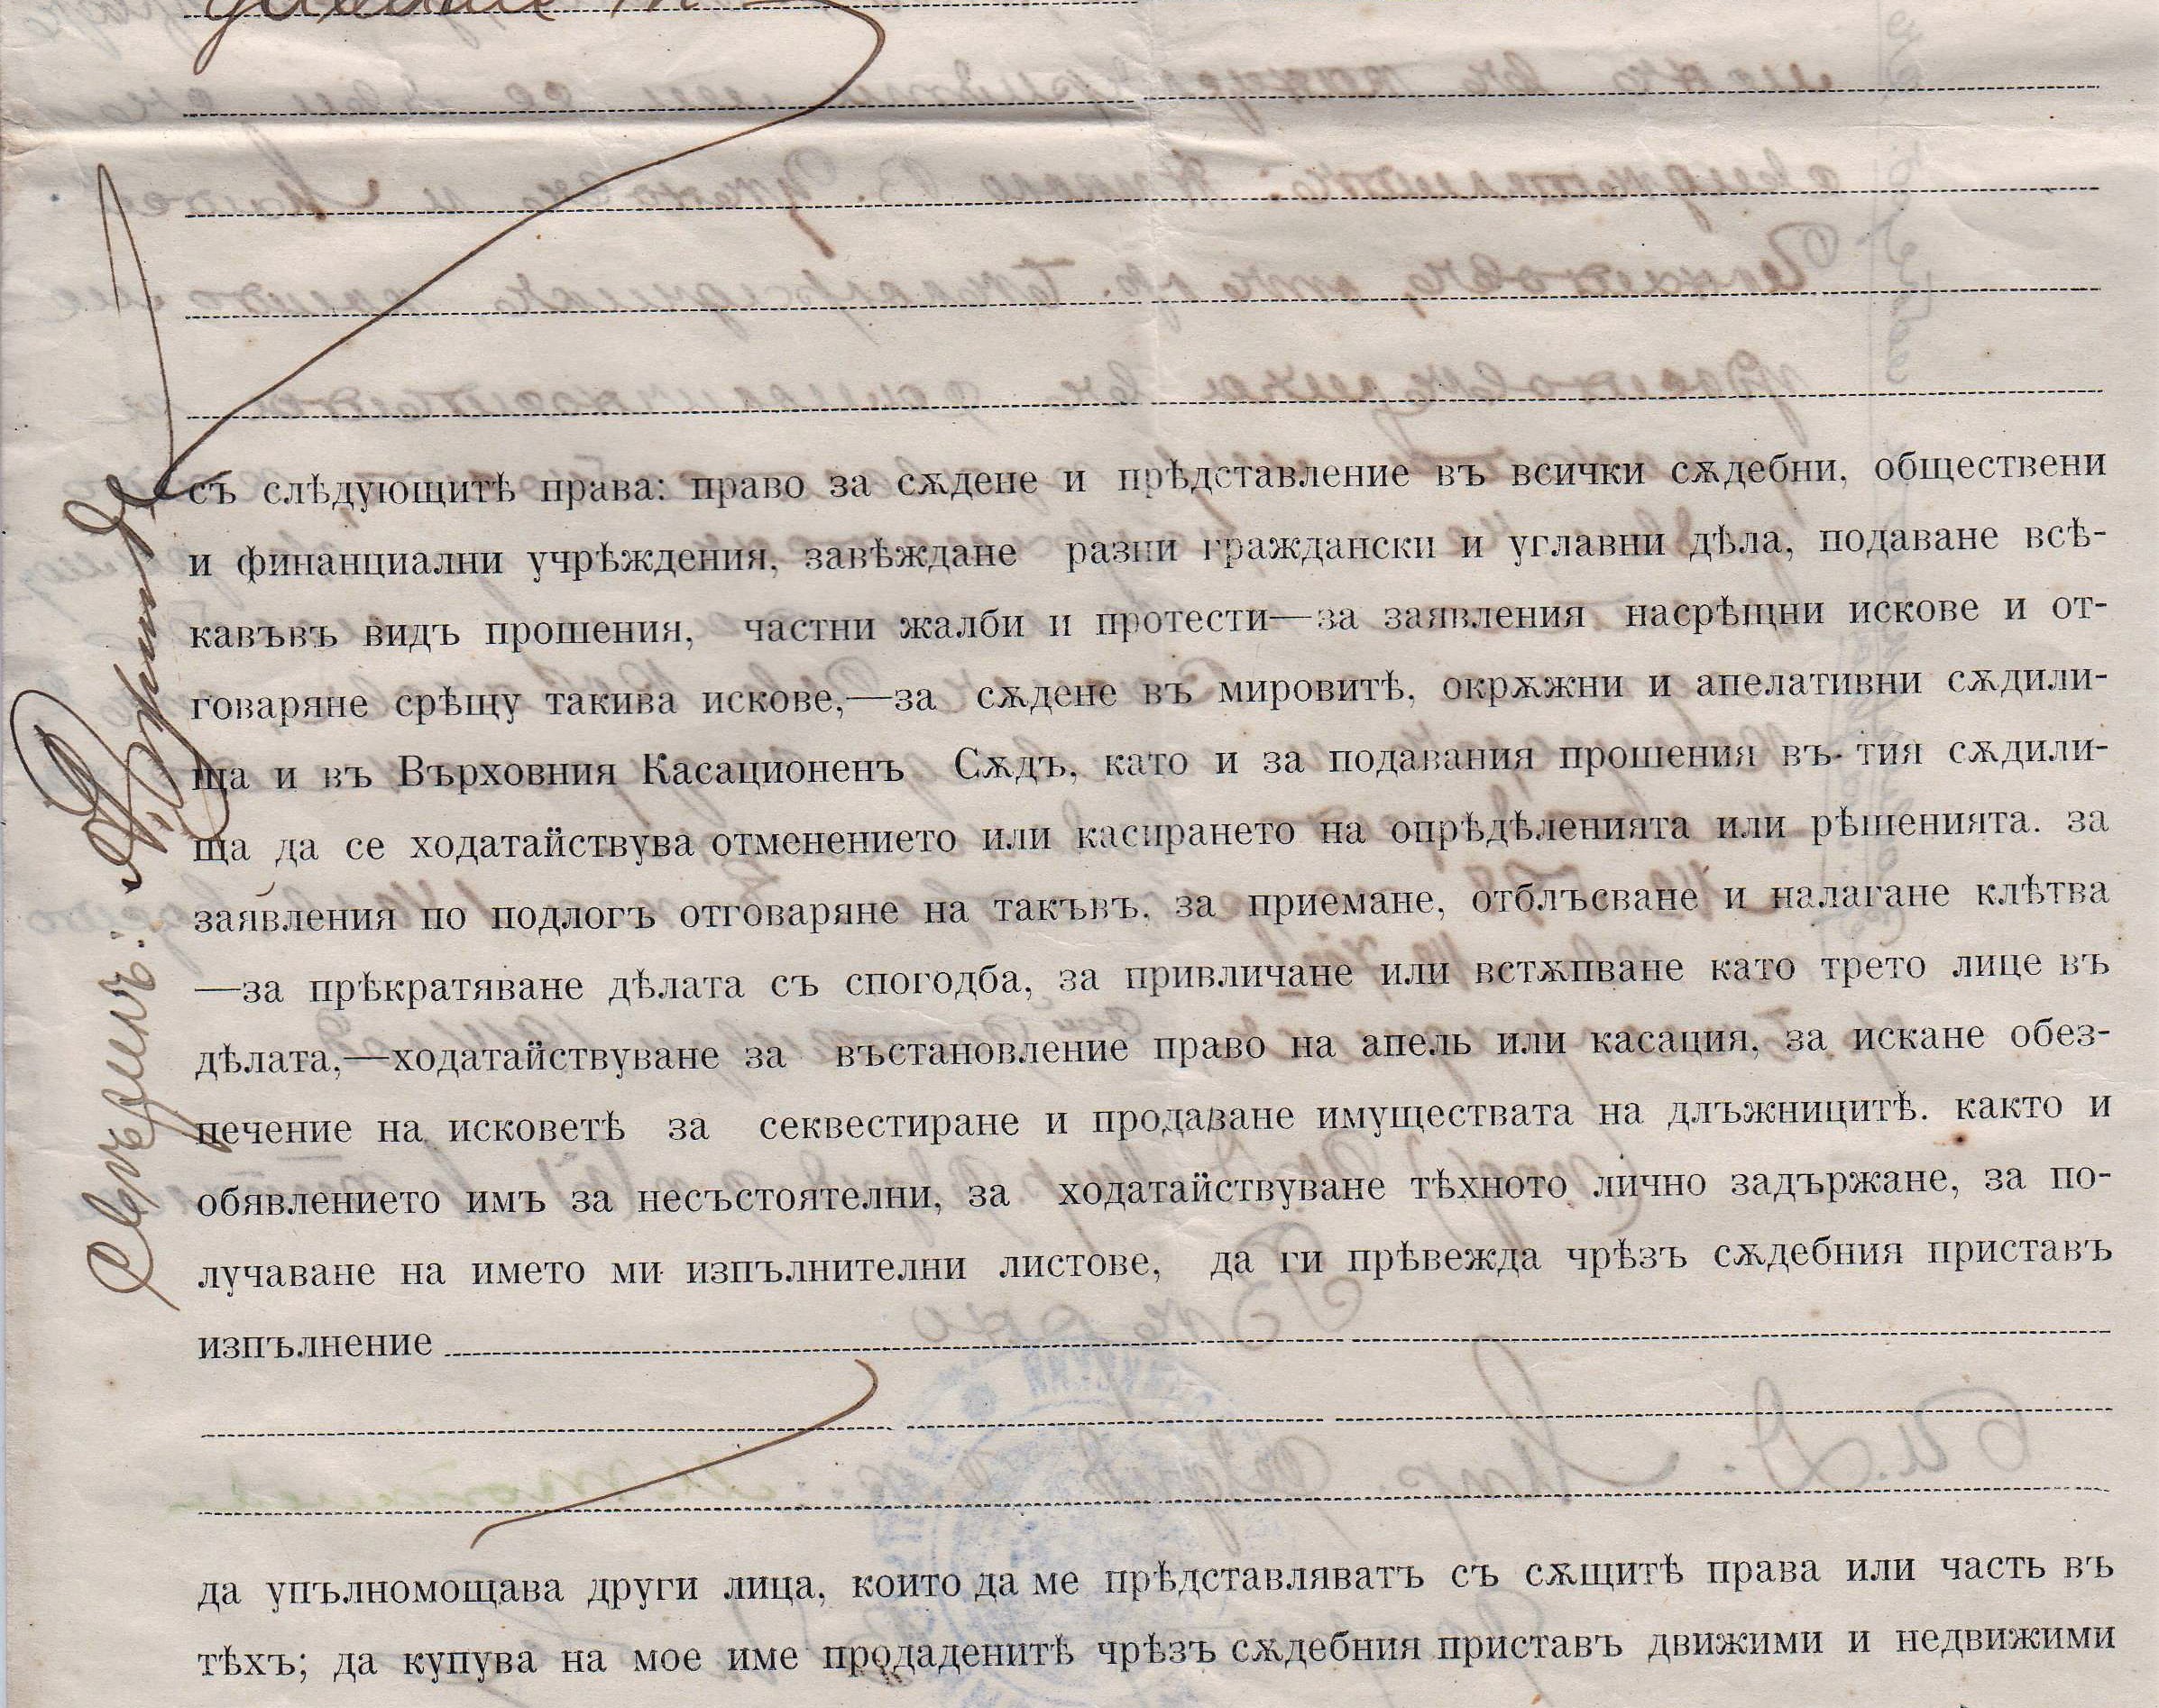 съ слѣдующитѣ права: право за сѫдене и прѣдставление въ всички сѫдебни, обществени
и финанциални учрѣждения, завѣждане разни граждански и углавни дѣла, подаване всѣ-
кавъвъ видъ прошения, частни жалби и протести—за заявления насрѣщни искове и от-
говаряне срѣщу такива искове,—за сѫдене въ мировитѣ, окрѫжни и апелативни сѫдили-
ща и въ Върховния Касационенъ Сѫдъ, като и за подавания прошения въ тия сѫдили-
ща да се ходатайствува отменението или касирането на опрѣдѣленията или рѣшенията. за
заявления по подлогъ отговаряне на такъвъ, за приемане, отблъсване и налагане клѣтва
—за прѣкратяване дѣлата съ спогодба, за привличане или встѫпване като трето лице въ
дѣлата,—ходатайствуване за въстановление право на апель или касация, за искане обез-
печение на исковетѣ за секвестиране и продаване имуществата на длъжницитѣ. както и
обявлението имъ за несъстоятелни, за ходатайствуване тѣхното лично задържане, за по-
лучаване на името ми изпълнителни листове, да ги прѣвежда чрѣзъ сѫдебния приставъ
изпълнение
да упълномощава други лица, които да ме прѣдставляватъ съ сѫщитѣ права или часть въ
тѣхъ; да купува на мое име продаденитѣ чрѣзъ сѫдебния приставъ движими и недвижими